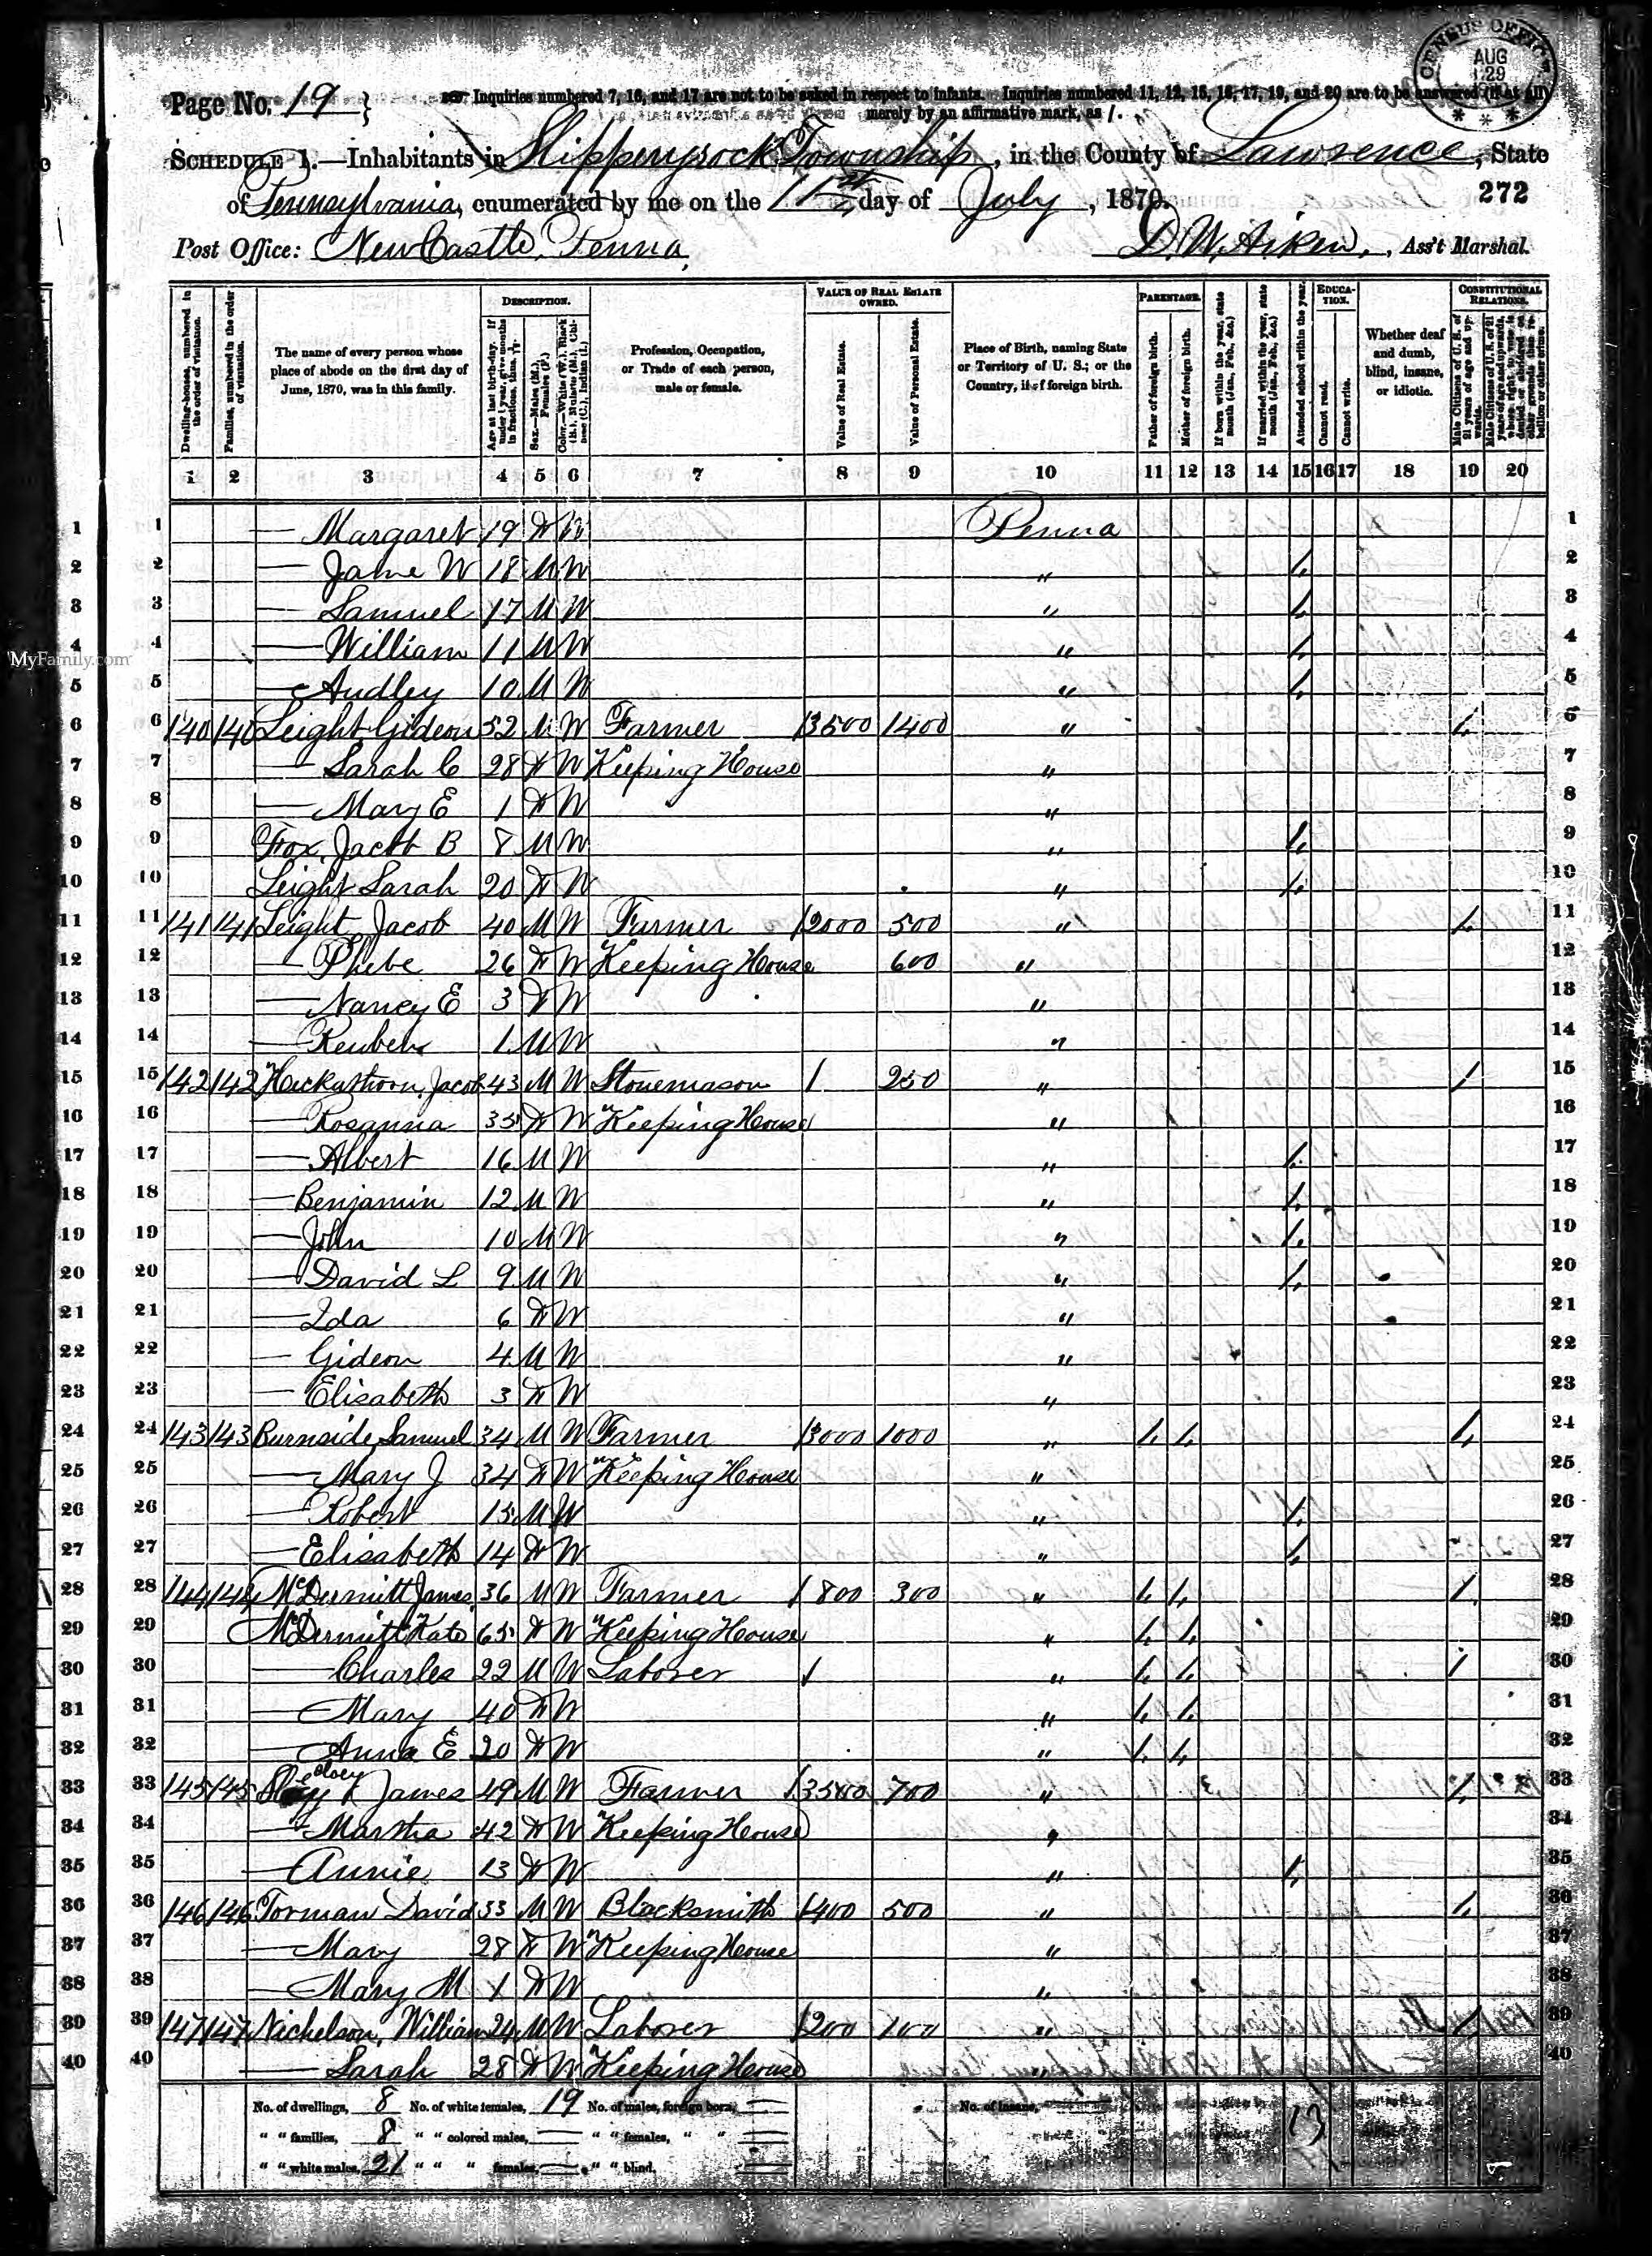 CENSUS OFFICE AUG 29
Page No. 19 }
Inquiries numbered 7, 16, and 17 are not to be asked in respect to infants. Inquiries numbered 11, 12, 15, 16, 17, 19, and 20 are to be answered (if at all)
merely by an affirmative mark, as /.
SCHEDULE 1.—Inhabitants in Slipperyrock Township, in the County of Lawrence, State
of Pennsylvania, enumerated by me on the 11th day of July, 1870.
272
Post Office: New Castle, Penna,
D. W. Aiken, Ass't Marshal.
Dwelling-houses, numbered in the order of visitation.
Families, numbered in the order of visitation.
The name of every person whose place of abode on the first day of June, 1870, was in this family.
DESCRIPTION.
Age at last birth-day. If under 1 year, give months in fractions, thus,
Sex.—Males (M.), Females (F.)
Color.—White (W.), Black (B.), Mulatto (M.), Chinese (C.), Indian (I.)
Profession, Occupation, or Trade of each person, male or female.
VALUE OF REAL ESTATE OWNED.
Value of Real Estate.
Value of Personal Estate.
Place of Birth, naming State or Territory of U. S.; or the Country, if of foreign birth.
PARENTAGE.
Father of foreign birth.
Mother of foreign birth.
If born within the year, state month (Jan., Feb., &c.)
If married within the year, state month (Jan., Feb., &c.)
Attended school within the year.
EDUCATION.
Cannot read.
Cannot write.
Whether deaf and dumb, blind, insane, or idiotic.
CONSTITUTIONAL RELATIONS.
Male Citizens of U. S. of 21 years of age and upwards.
Male Citizens of U. S. of 21 years of age and upwards, whose right to vote is denied or abridged on other grounds than rebellion or other crime.
1 2 3 4 5 6 7 8 9 10 11 12 13 14 15 16 17 18 19 20
1 — Margaret 19 F W Penna 1
2 — Jame W 18 M W " / 2
3 — Samuel 17 M W " / 3
4 — William 11 M W " / 4
MyFamily.com
5 — Audley 10 M W " / 5
6 140 140 Leight Gideon 52 M W Farmer 3500 1400 " / 6
7 — Sarah C 28 F W Keeping House " 7
8 — Mary E 1 F W " 8
9 Fox, Jacob B 8 M W " / 9
10 Leight Sarah 20 F W " / 10
11 141 141 Leight Jacob 40 M W Farmer 2000 500 " / 11
12 — Phebe 26 F W Keeping House 600 " 12
13 — Nancy E 3 F W " 13
14 — Reuben 1 M W " 14
15 142 142 Heckathorn, Jacob 43 M W Stonemason / 250 " / 15
16 — Rosanna 35 F W Keeping House " 16
17 — Albert 16 M W " / 17
18 — Benjamin 12 M W " / 18
19 — John 10 M W " / 19
20 — David L 9 M W " / 20
21 — Ida 6 F W " 21
22 — Gideon 4 M W " 22
23 — Elisabeth 3 F W " 23
24 143 143 Burnside, Samuel 34 M W Farmer 3000 1000 " / / / 24
25 — Mary J 34 F W Keeping House " 25
26 — Robert 15 M W " / 26
27 — Elisabeth 14 F W " / 27
28 144 144 McDermitt James 36 M W Farmer 800 300 " / / / 28
29 McDermitt Kate 65 F W Keeping House " / / 29
30 — Charles 22 M W Laborer / " / / / 30
31 — Mary 40 F W " / / 31
32 — Anna E 20 F W " / / 32
33 145 145 James 49 M W Farmer 3500 700 " / 33
34 — Martha 42 F W Keeping House " 34
35 — Annie 13 F W " / 35
36 146 146 Forman David 33 M W Blacksmith 400 500 " / 36
37 — Mary 28 F W Keeping House " 37
38 — Mary M 1 F W " 38
39 147 147 Nichelson, William 24 M W Laborer 200 100 " / 39
40 — Sarah 28 F W Keeping House " 40
No. of dwellings, 8 No. of white females, 19 No. of males, foreign born, — No. of insane,
" " families, 8 " " colored males, — " " females, " " — 13
" " white males, 21 " " " females, — " " blind, —